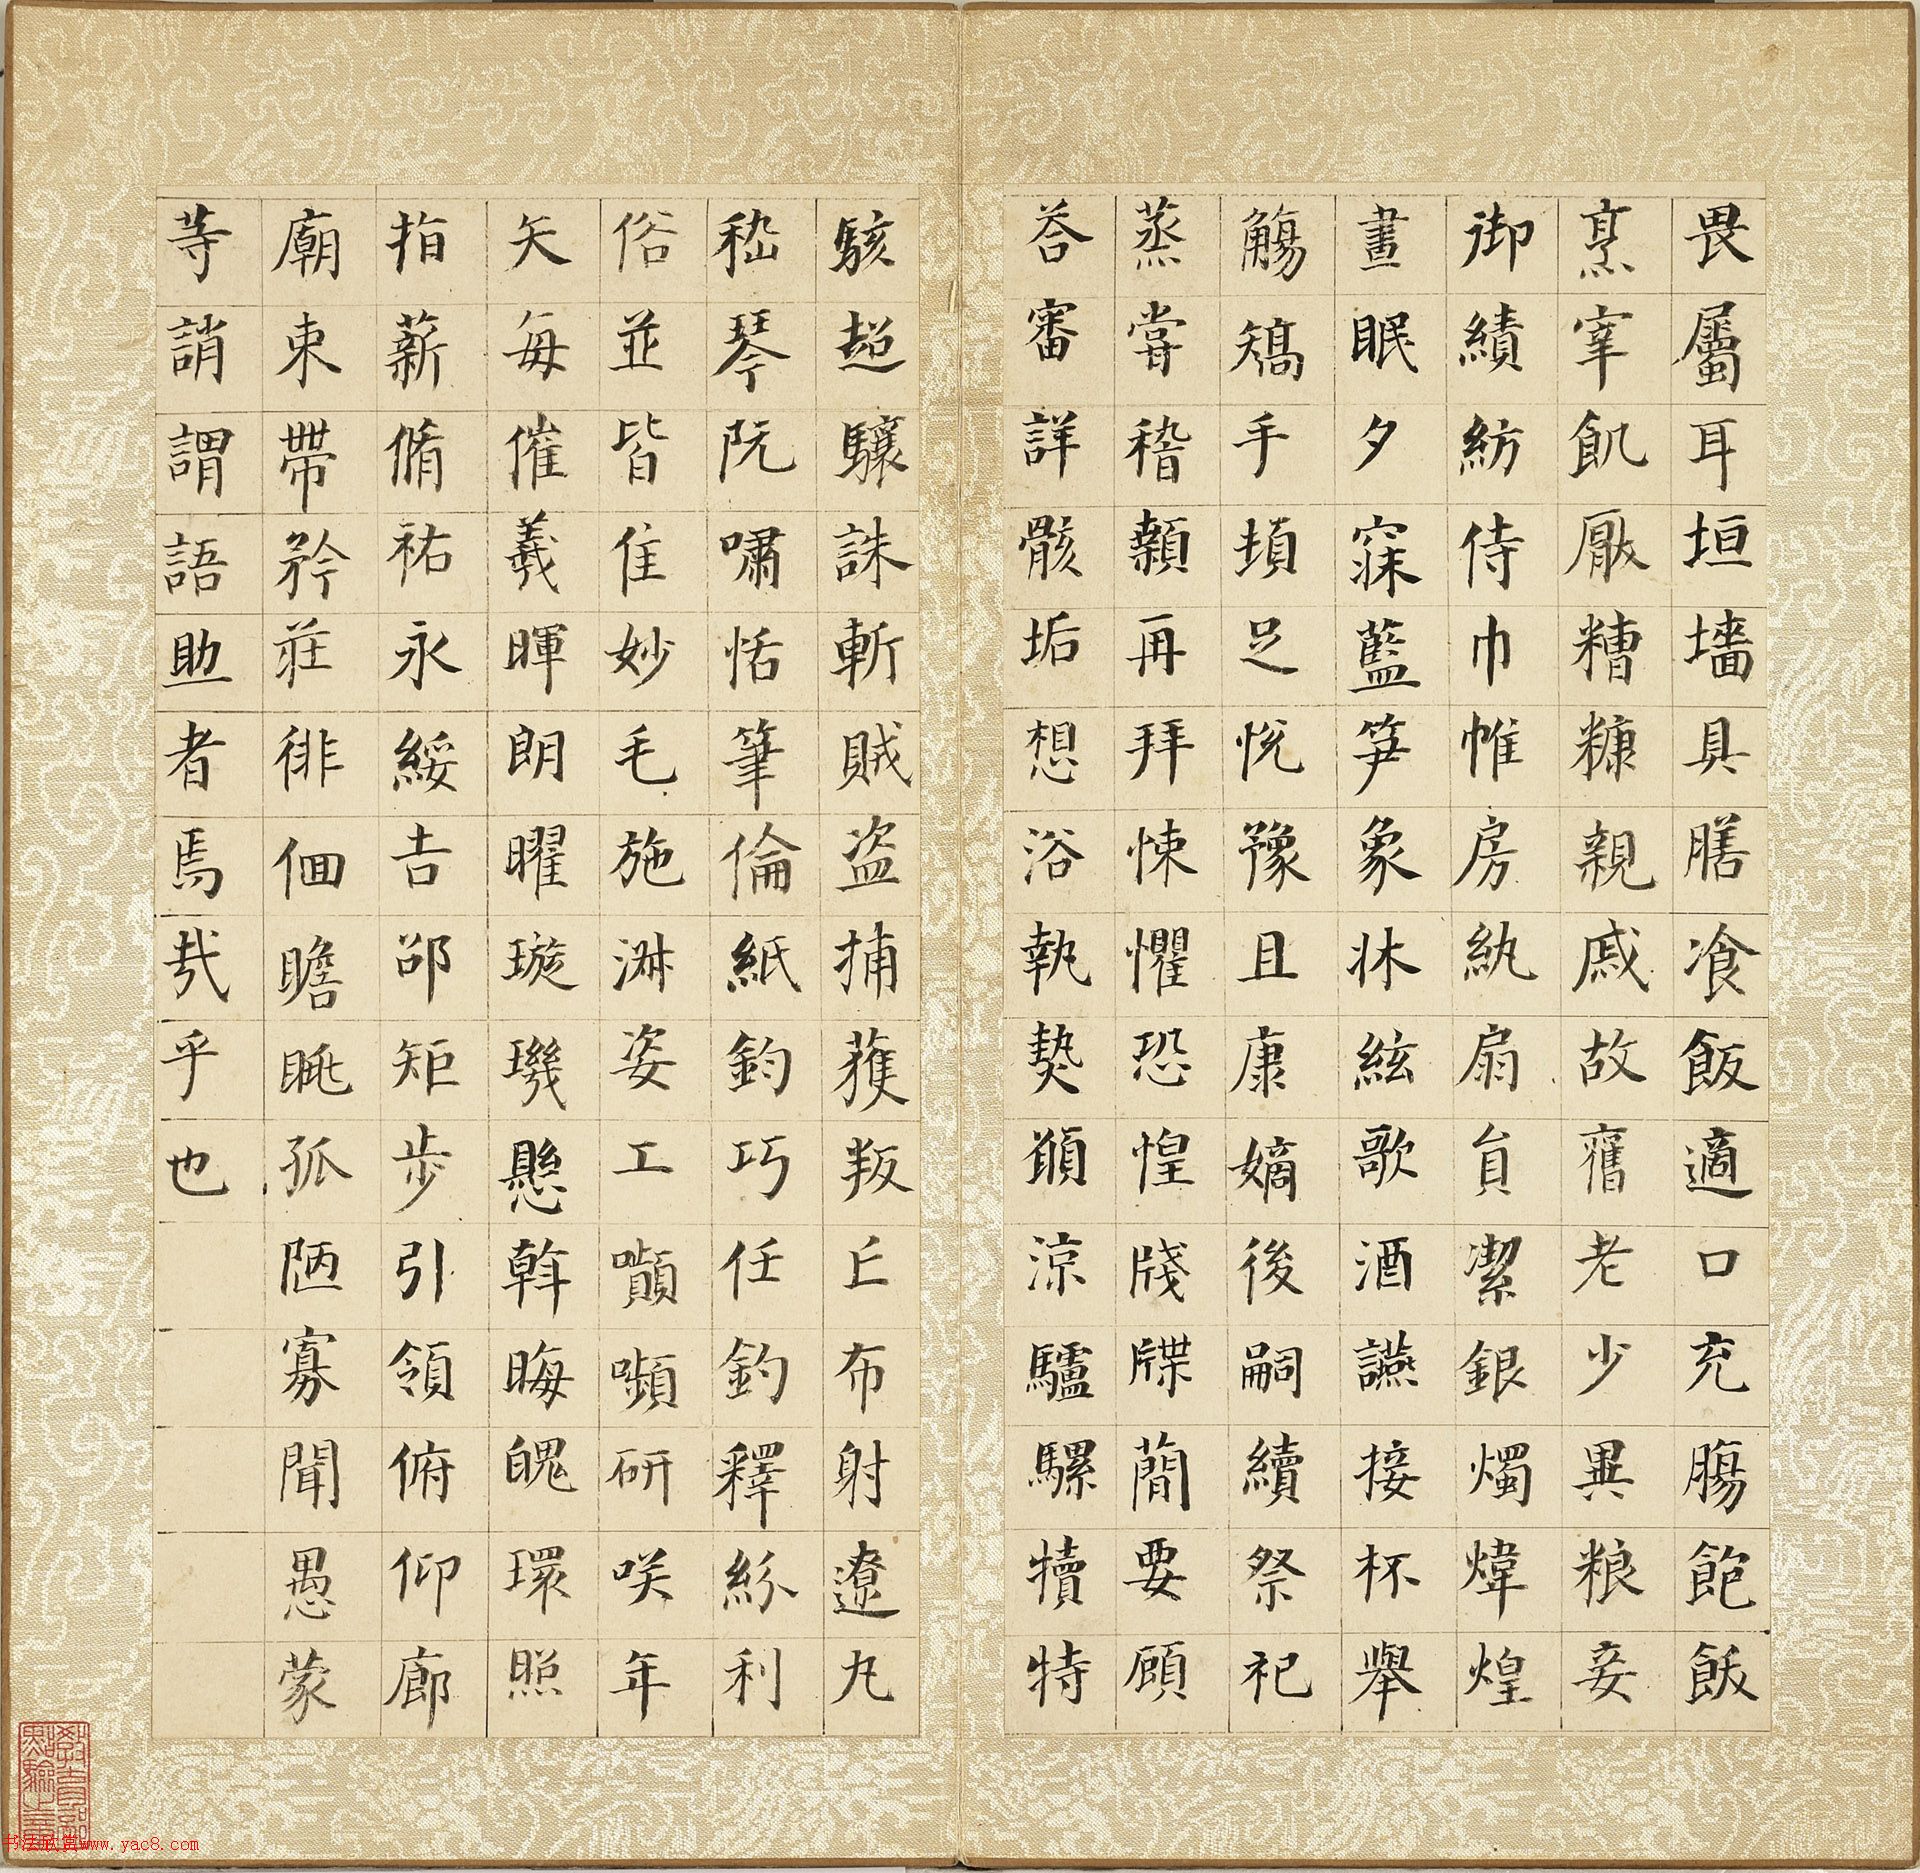 畏屬耳垣墻具膳飡飯適口充腸飽飫
烹宰飢厭糟糠親戚故舊老少異粮妾
御績紡侍巾帷房紈扇員潔銀燭煒煌
晝眠夕寐藍笋象牀絃歌酒讌接杯舉
觴矯手頓足悅豫且康嫡後嗣續祭祀
蒸嘗稽顙再拜悚懼恐惶牋牒簡要顧
荅審詳骸垢想浴執熱願涼驢騾犢特
駭超驤誅斬賊盜捕獲叛亡布射遼丸
嵇琴阮嘯恬筆倫紙鈞巧任釣釋紛利
俗並皆佳妙毛施淑姿工顰嚬研咲年
矢每催羲暉朗曜璇璣懸斡晦魄環照
指薪脩祐永綏吉邵矩步引領俯仰廊
廟束帶矜莊徘徊瞻眺孤陋寡聞愚蒙
等誚謂語助者焉哉乎也
书法欣赏www.yac8.com